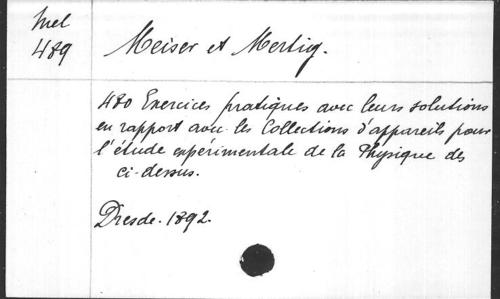 Mel
489
Meiser et Mertig.
480 Exercices pratiques avec leurs solutions
en rapport avec les Collections d'appareils pour
l'étude expérimentale de la Physique des
ci-dessus.
Dresde. 1892.